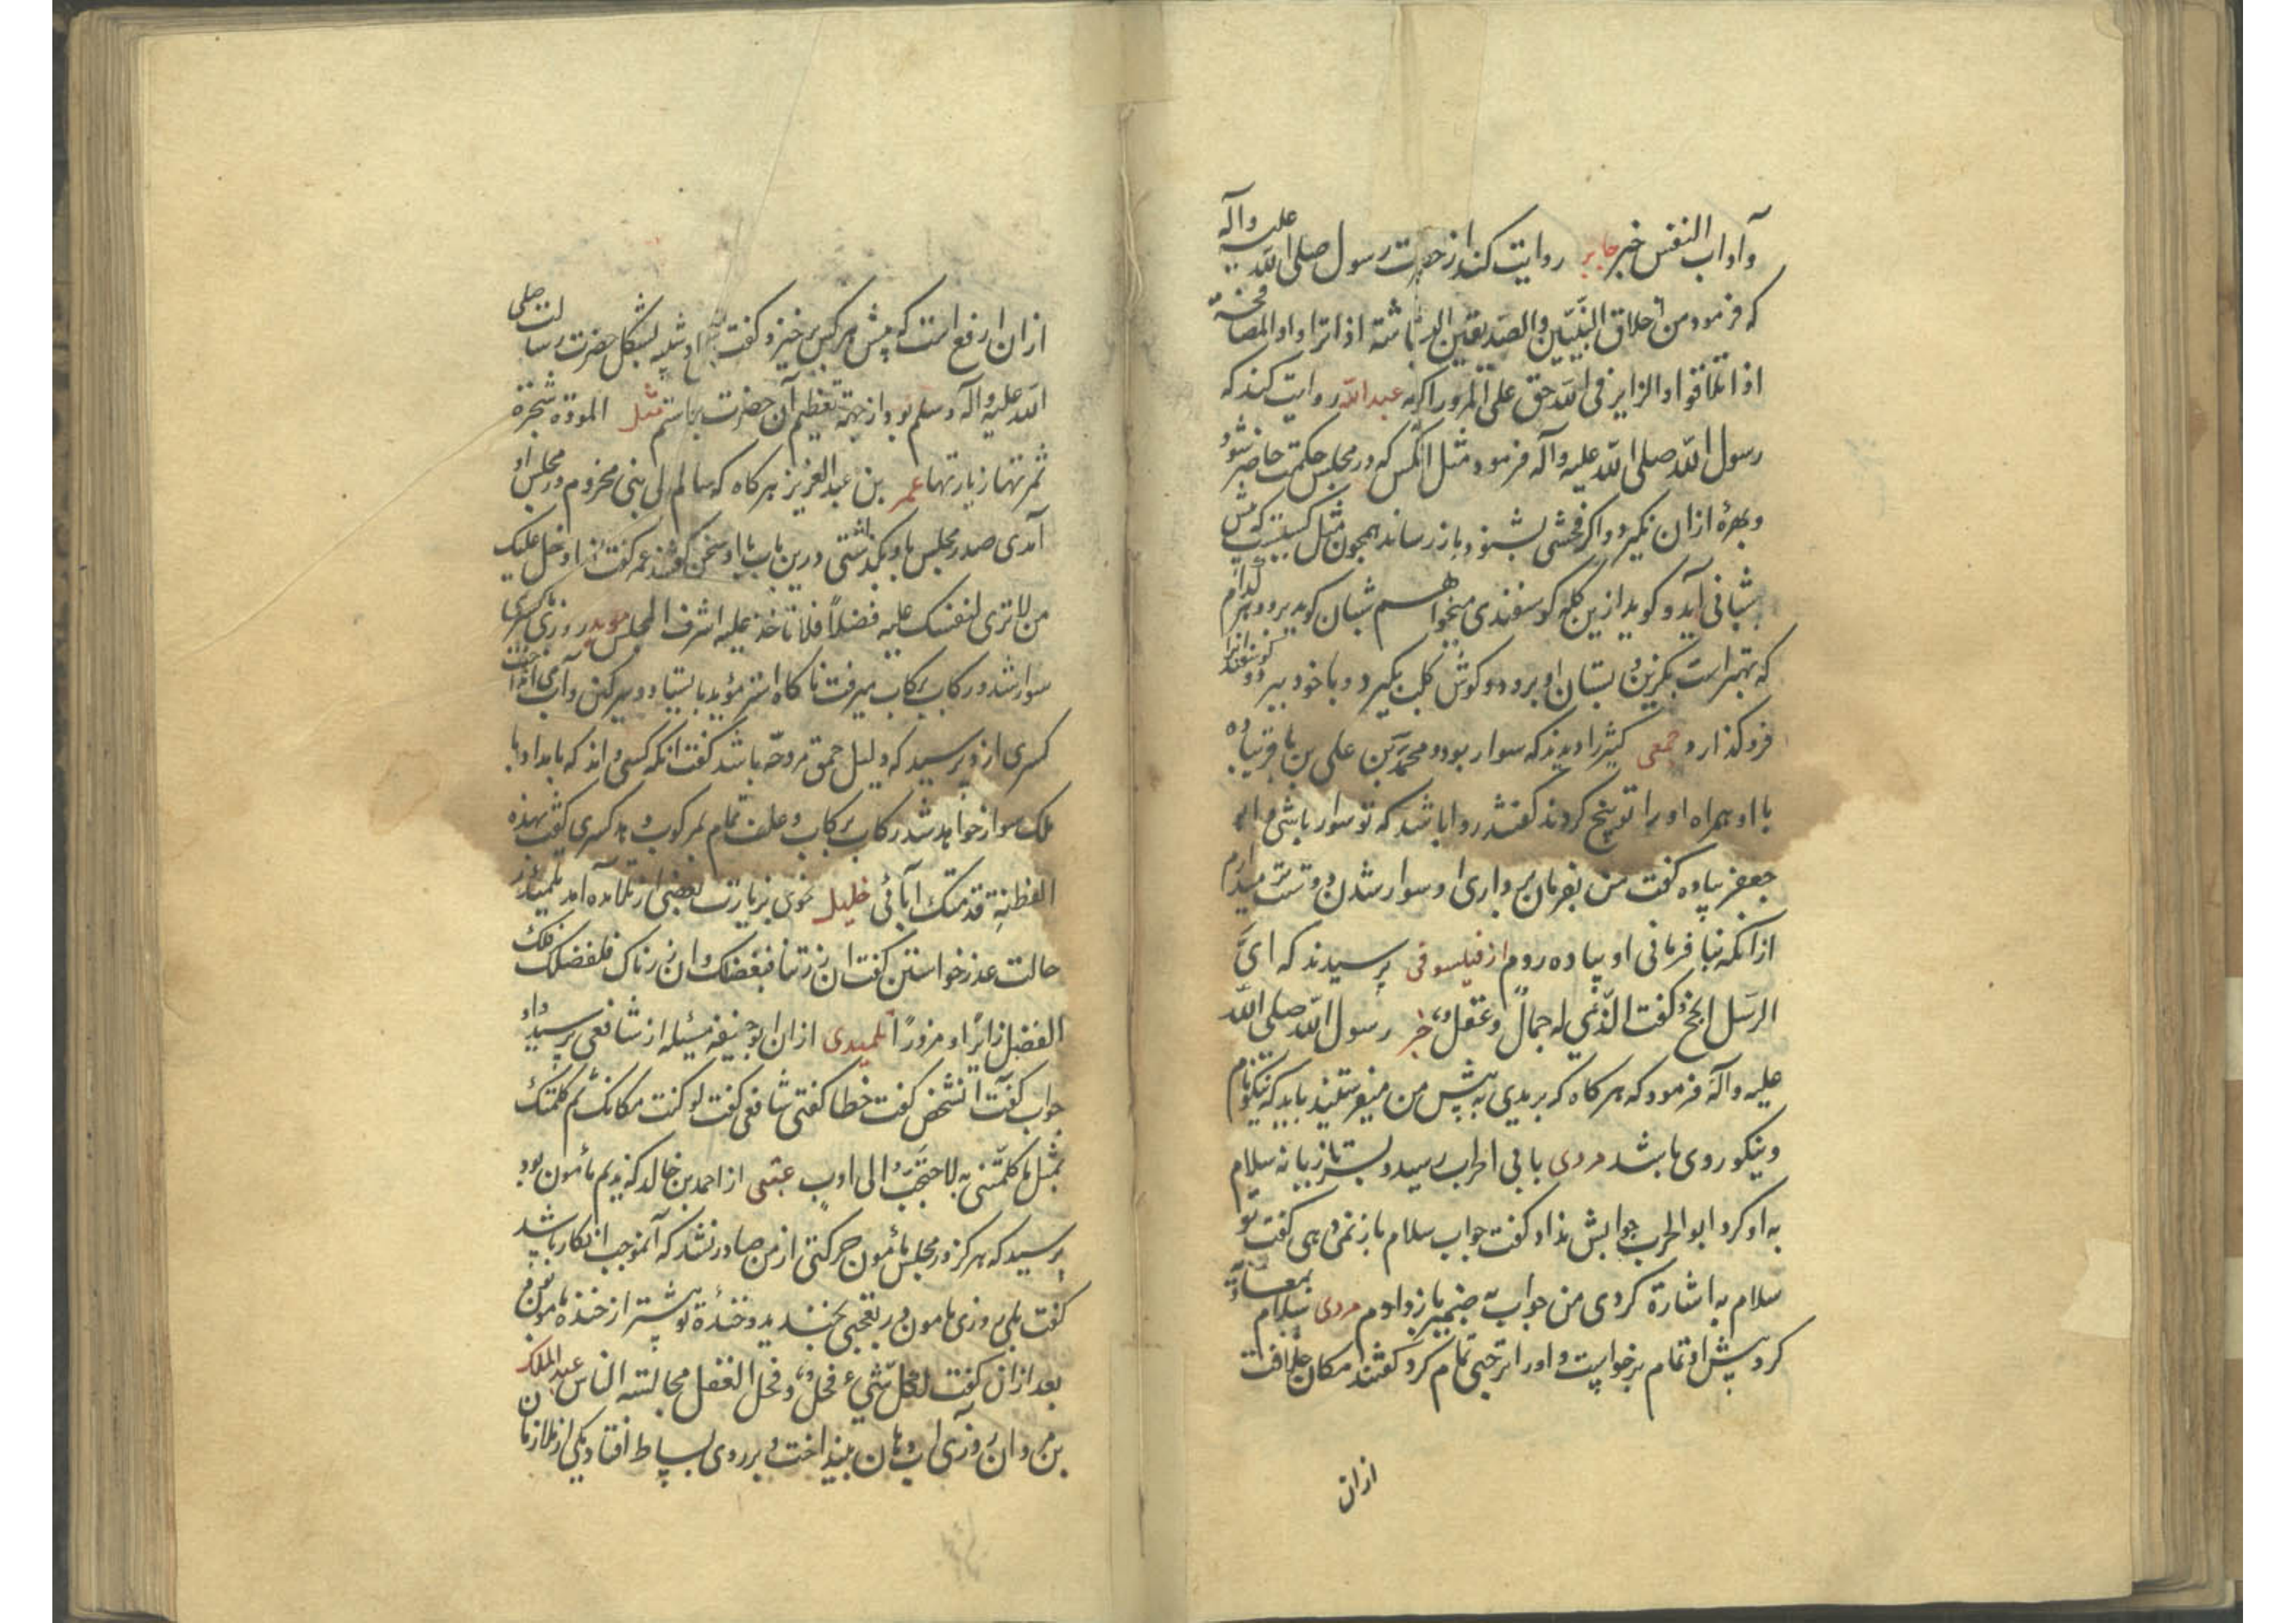 وآداب النفس خبر جابر روایت کند از حضرت رسول صلی الله علیه وآله
که فرمود من اخلاق النبیین والصدیقین البشاشته اذا تراوا والمصافحة
اذا تلاقوا والزایر فی الله حق علی المزور اکرامه عبدالله روایت کند که
رسول الله صلی الله علیه وآله فرمود مثل انکس که در مجلس حکمت حاضر شود
وبهرهٔ ازان نکیرد واکر فحشی بشنود باز رساند همچون مثل کسیست که پیش
شبانی آید و کوید ازین کله کوسفندی میخواهم شبان کوید برو و هر کدام
که بهتر است بکزین بستان او برود و کوش کلب بکیرد و با خود ببرد و کوسفندانرا
فرو کذارد جمعی کثیر را دیدند که سوار بود و محمد بن علی بن باقر پیاده
با او همراه اورا توبیخ کردند کفتند روا باشد که تو سوار باشی و
جعفر پیاده کفت من بفرمان برداری او سوار شدن دوستتر میدارم
ازانکه بنا فرمانی او پیاده روم از فیلسوفی پرسیدند که ای
الرسل انجح کفت الذی له جمال وعقل خبر رسول الله صلی الله
علیه وآله فرمود که هر کاه که بریدی به پیش من میفرستید باید که نیکونام
ونیکو روی باشد مردی بابی الحرب رسید و بسر تازیانه سلام
به او کرد ابو الحرب جوابش نداد کفت جواب سلام باز نمی دهی کفت تو
سلام به اشارة کردی من جواب به ضمیر باز دادم مردی سلام بمعاویه
کرد پیش او تمام برخواست و اورا ترحبی تمام کرد کفتند مکان خلافت
ازان
ازان ارفع است که پیش هر کس برخیزد کفت او شبیه بشکل حضرت رسالت صلی
الله علیه وآله وسلم بود از جهة تعظیم آن حضرت برخاستم مثل المودة شجرة
ثمرتها زیارتها عمر بن عبدالعزیز هر کاه که سالم مولی بنی مخزوم در مجلس او
آمدی صدر مجلس باو بکذاشتی درین باب با او سخن کفتند عمر کفت اذا دخل علیک
من لا تری لنفسک علیه فضلاً فلا تاخذ علیه اشرف المجلس موبد روزی با کسری
سوار شد و رکاب برکاب میرفت ناکاه استر مؤبد بایستاد و سرکین و آب می انداخت
کسری ازو پرسید که دلیل حمق مرد چه باشد کفت انکه کسی داند که بامداد با
ملک سوار خواهد شد رکاب برکاب و علف تمام بمرکوب دهد کسری کفت بهذه
الفطنة قدمتک آبائی خلیل نحوی بزیارت بعضی از تلامذه آمد تلمیذ در
حالت عذر خواستن کفت ان زرتنا فبفضلک وان زرناک فلفضلک فلک
الفضل زائراً ومزوراً تلمیذی ازان ابو حنیفه مسئله از شافعی پرسید او
جواب کفت آنشخص کفت خطا کفتی شافعی کفت لو کنت مکانک ثم کلمتک
بمثل ما کلمتنی به لاحتجت الی ادب عتبی از احمد بن خالد که ندیم مأمون بود
پرسید که هرکز در مجلس مأمون حرکتی از من صادر نشد که آن موجب انکار باشد
کفت بلی روزی مامون در تعجبی بخندید و خندهٔ تو بیشتر از خندهٔ مامون بود
بعد ازان کفت لکل شیء فحل وفحل العقل مجالسة الناس عبدالملک
بن مروان روزی آب دهان بینداخت و بر روی بساط افتاد یکی از ملازمان